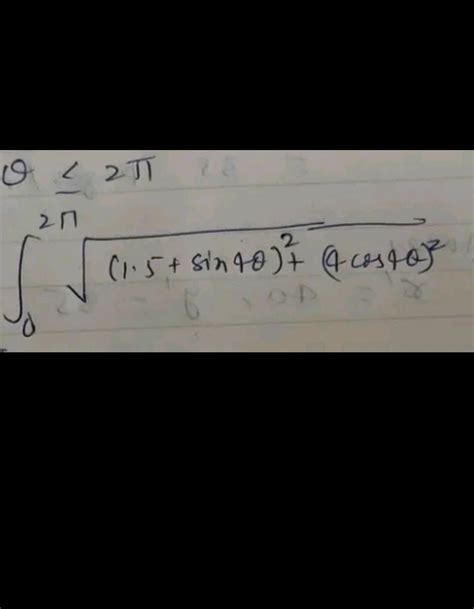 θ ≤ 2π
∫₀^2π √((1.5 + sin4θ)² + (4cos4θ)²